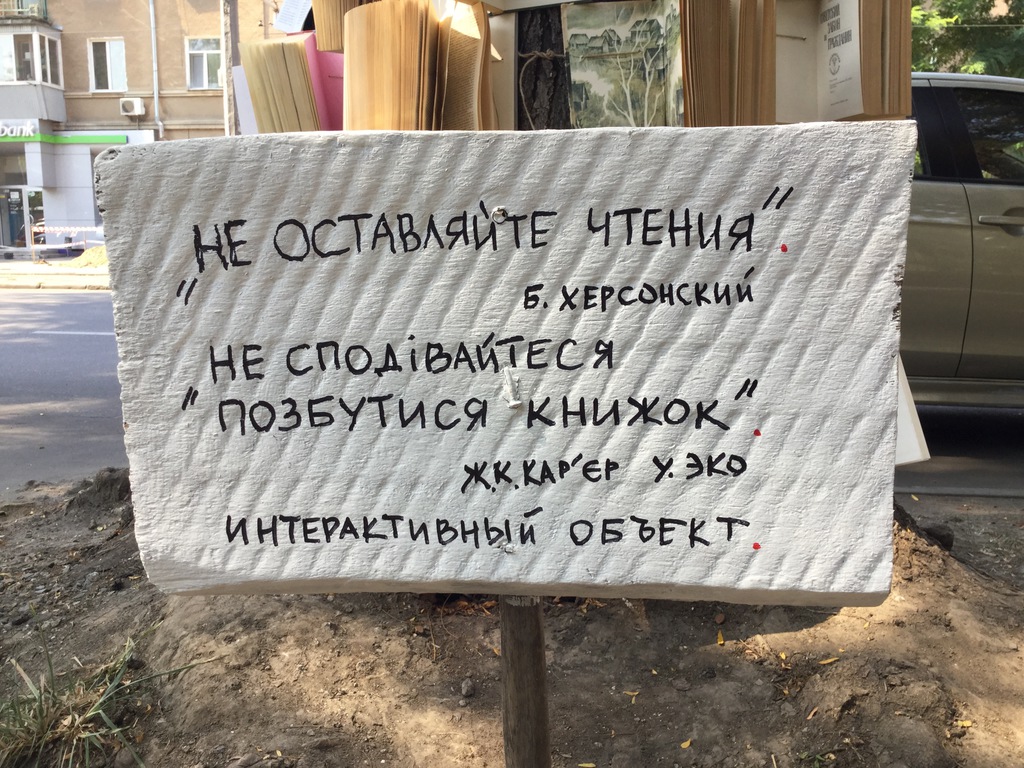 bank
"НЕ ОСТАВЛЯЙТЕ ЧТЕНИЯ".
Б. ХЕРСОНСКИЙ
НЕ СПОДІВАЙТЕСЯ
"ПОЗБУТИСЯ КНИЖОК".
Ж.К.КАР'ЄР У. ЭКО
ИНТЕРАКТИВНЫЙ ОБЪЕКТ.